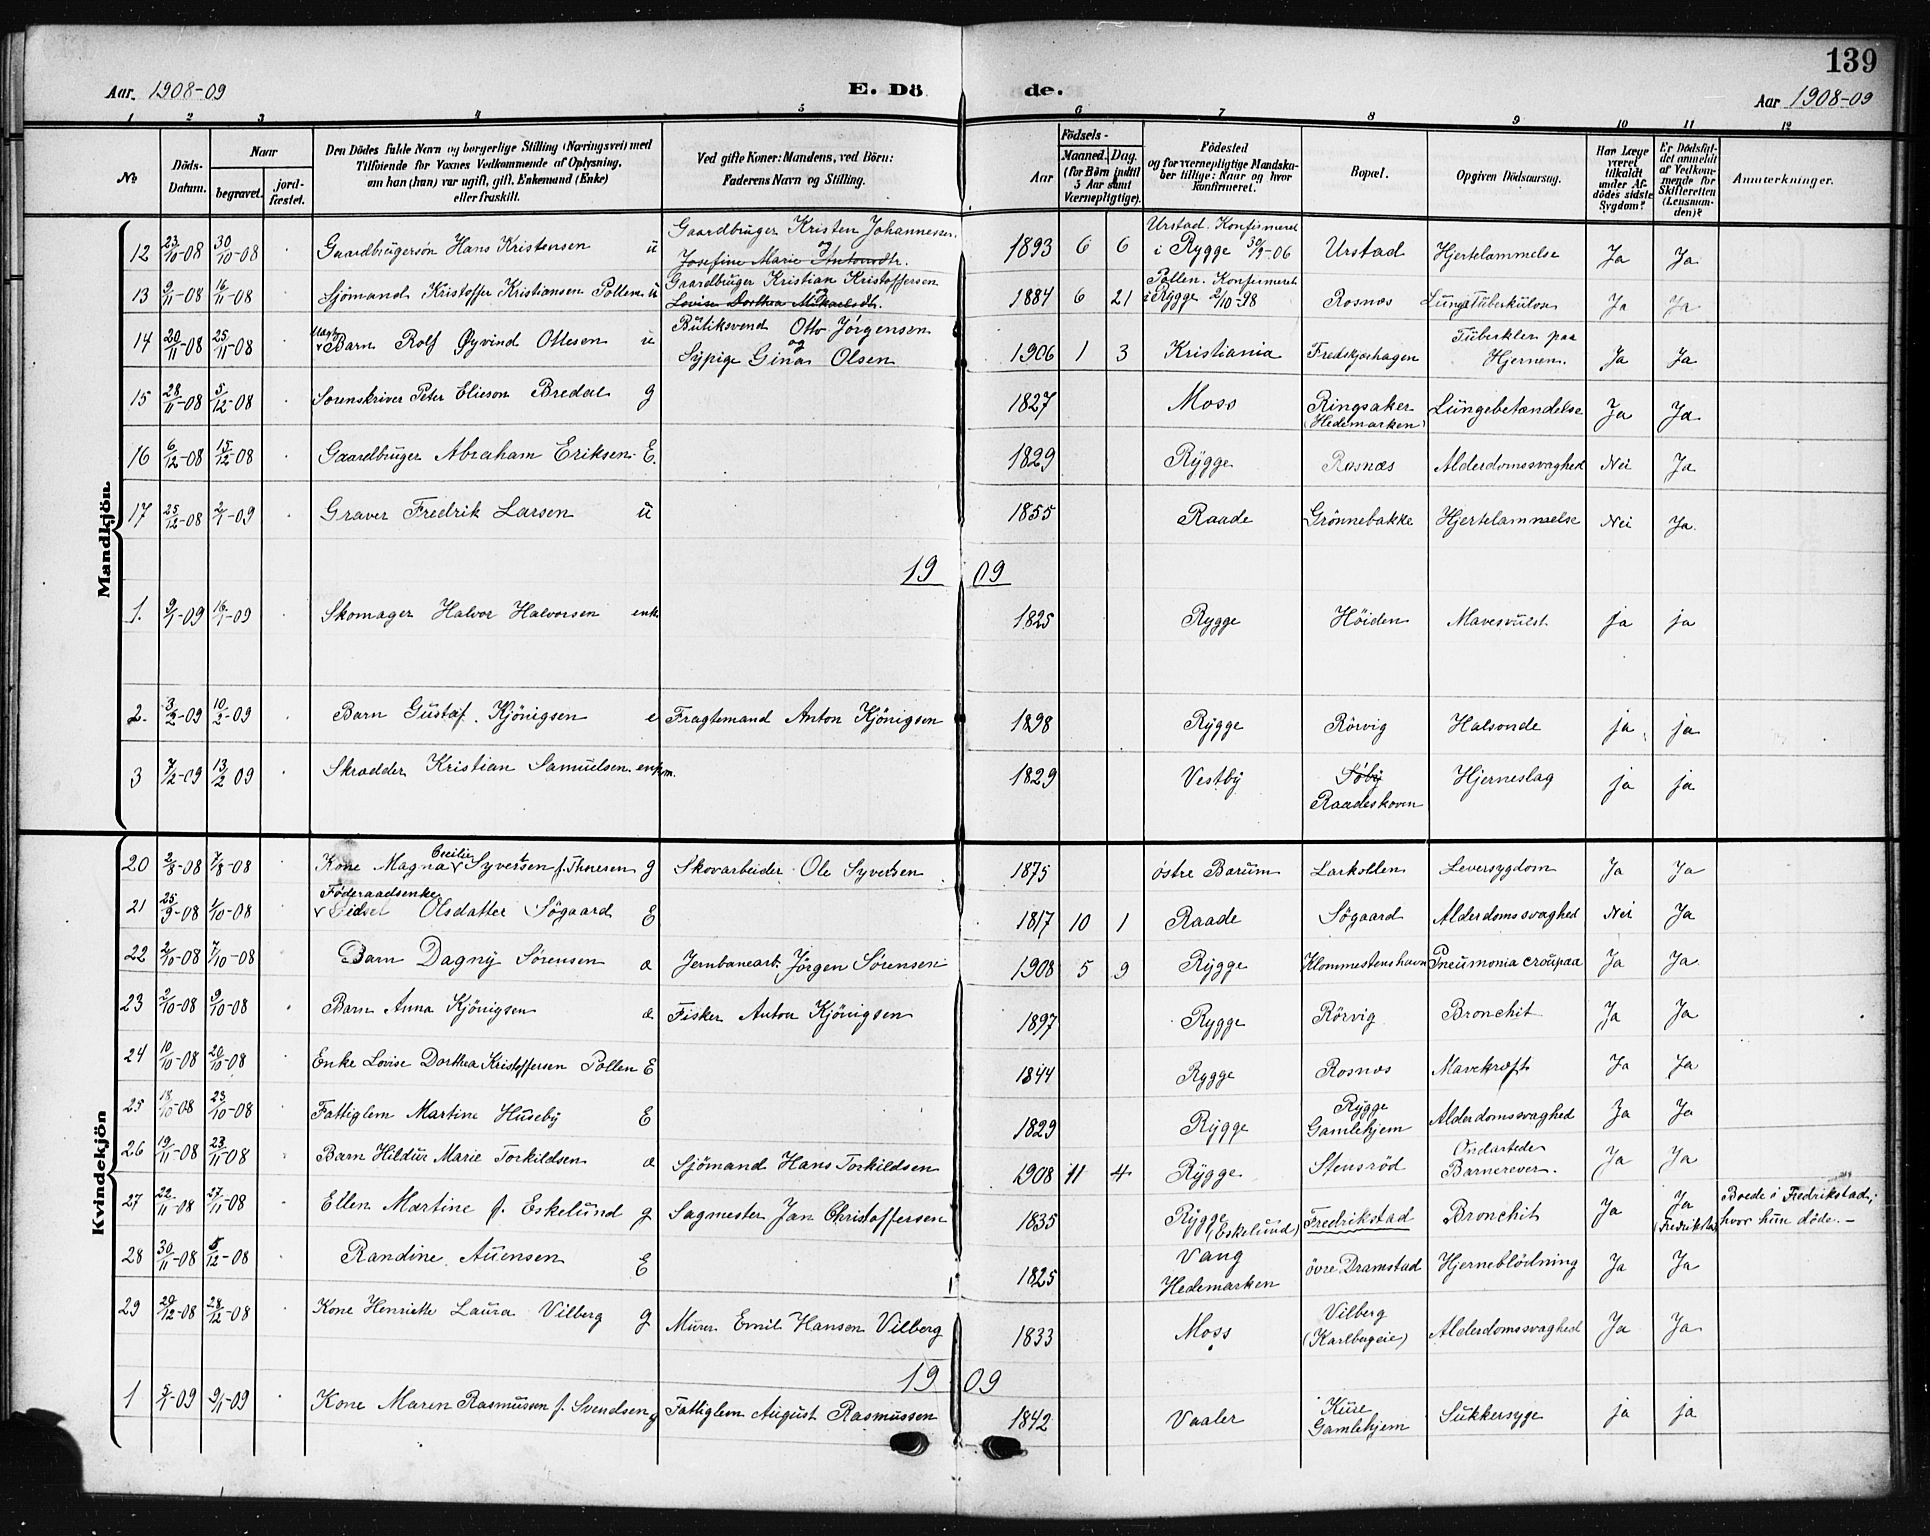 139
Aar. 1908-09
E. Dö de.
Aar 1908-09
1 2 3 4 5 6 7 8 9 10 11 12
No
Döds-Datum.
Naar
begravet.
jord-fæstet.
Den Dödes fulde Navn og borgerlige Stilling (Næringsvei) med
Tilföiende for Voxnes Vedkommende af Oplysning,
om han (hun) var ugift, gift, Enkemand (Enke)
eller fraskilt.
Ved gifte Koner: Mandens, ved Börn:
Faderens Navn og Stilling.
Födsels-
Aar
Maaned. Dag.
(for Börn indtil
5 Aar samt
Værnepligtige).
Födested
og for værnepligtige Mandska-
ber tillige: Naar og hvor
konfirmeret.
Bopæl.
Opgiven Dödsaarsag.
Har Læge
været
tilkaldt
under Af-
dödes sidste
Sygdom?
Er Dödsfal-
det anmeldt
af Vedkom-
mende for
Skifteretten
(Lensman-
den)?
Anmærkninger.
Mandkjön.
12 23/10-08 30/10-08 Gaardbrugersön Hans Kristensen u Gaardbruger Kristen Johannessen og Josefine Marie Antonsdtr. 1893 6 6 Urstad. Konfirmeret i Rygge 30/9-06 Urstad Hjertelammelse Ja Ja
13 9/11-08 16/11-08 Sjömand Kristoffer Kristiansen Pollen u Gaardbruger Kristian Kristoffersen og Lovise Dorthea Mikaelsdtr. 1884 6 21 Pollen. Konfirmeret i Rygge 2/10-98 Rosnæs Lungetuberkulose Ja Ja
14 20/11-08 25/11-08 Barn Rolf Øyvind Ottesen u Butiksvend Otto Jörgensen og Sypige Gina Olsen 1906 1 3 Kristiania Fredskjærhagen Tuberkler paa Hjernen. Ja Ja
15 28/11-08 5/12-08 Sorenskriver Peter Elieson Bredal g 1827 Moss Ringsaker (Hedemarken) Lungebetændelse Ja Ja
16 6/12-08 15/12-08 Gaardbruger Abraham Eriksen E. 1829 Rygge Rosnæs Alderdomssvaghed Nei Ja
17 25/12-08 2/1-09 Graver Fredrik Larsen u 1855 Raade Grönnebakke Hjertelammelse Nei Ja
19 09
1. 9/1-09 16/1-09 Skomager Halvor Halvorsen enk 1825 Rygge Höiden Mavesvulst ja ja
2. 3/2-09 10/2-09 Barn Gustaf. Kjönigsen e Fragtemand Anton Kjönigsen 1898 Rygge Rörvig Halsonde ja ja
3 7/2-09 13/2 09 Skrædder Kristian Samuelsen enkm. 1829 Vestby Söby Raadeskoven Hjerneslag ja ja
Kvindekjön
20 2/8-08 7/8-08 Kone Magna Cecilie Syvertsen f. Thoresen g Skovarbeider Ole Syvertsen 1875 østre Bærum Larkollen Leversygdom Ja Ja
21 25/9-08 1/10-08 Föderaadsenke Olsdatter Søgaard E 1817 10 1 Raade Søgaard Alderdomssvaghed Nei Ja
22 2/10-08 7/10-08 Barn Dagny Sörensen a Jernbanearb. Jörgen Sörensen 1908 5 9 Rygge Klommestenshavn Pneumonia croupøa Ja Ja
23 2/10-08 9/10-08 Barn Anna Kjönigsen a Fisker Anton Kjönigsen 1897 Rygge Rörvig Bronchit Ja Ja
24 10/10-08 20/10-08 Enke Lovise Dorthea Kristoffersen Pollen E 1844 Rygge Rosnæs Mavekræft Ja Ja
25 18/10-08 23/10-08 Fattiglem Martine Huseby E 1829 Rygge Rygge Gamlehjem Alderdomssvaghed Ja Ja
26 19/11-08 23/11-08 Barn Hildur Marie Torkildsen a Sjömand Hans Torkildsen 1908 11 4 Rygge Stensröd Ondartede Ja Ja
27 22/11-08 27/11-08 Ellen Martine f. Eskelund g Sagmester Jan Christoffersen 1835 Rygge (Eskelund) Fredrikstad Bronchit Ja Ja (Fredrikstad) Boede i Fredrikstad, hvor hun döde. -
28 30/11-08 5/12-08 Randine Auensen E 1825 Vang Hedemarken övre Dramstad Hjerneblödning Ja Ja
29 20/12-08 28/12-08 Kone Henriette Laura Vilberg g Murer Emil Hansen Vilberg 1833 Moss Vilberg (Karlbogeie) Alderdomssvaghed Ja Ja
19 09
1 5/1-09 9/1-09 Kone Maren Rasmussen f. Svendsen g Fattiglem August Rasmussen 1842 Vaaler Kure Gamlehjem Sukkersyge ja ja